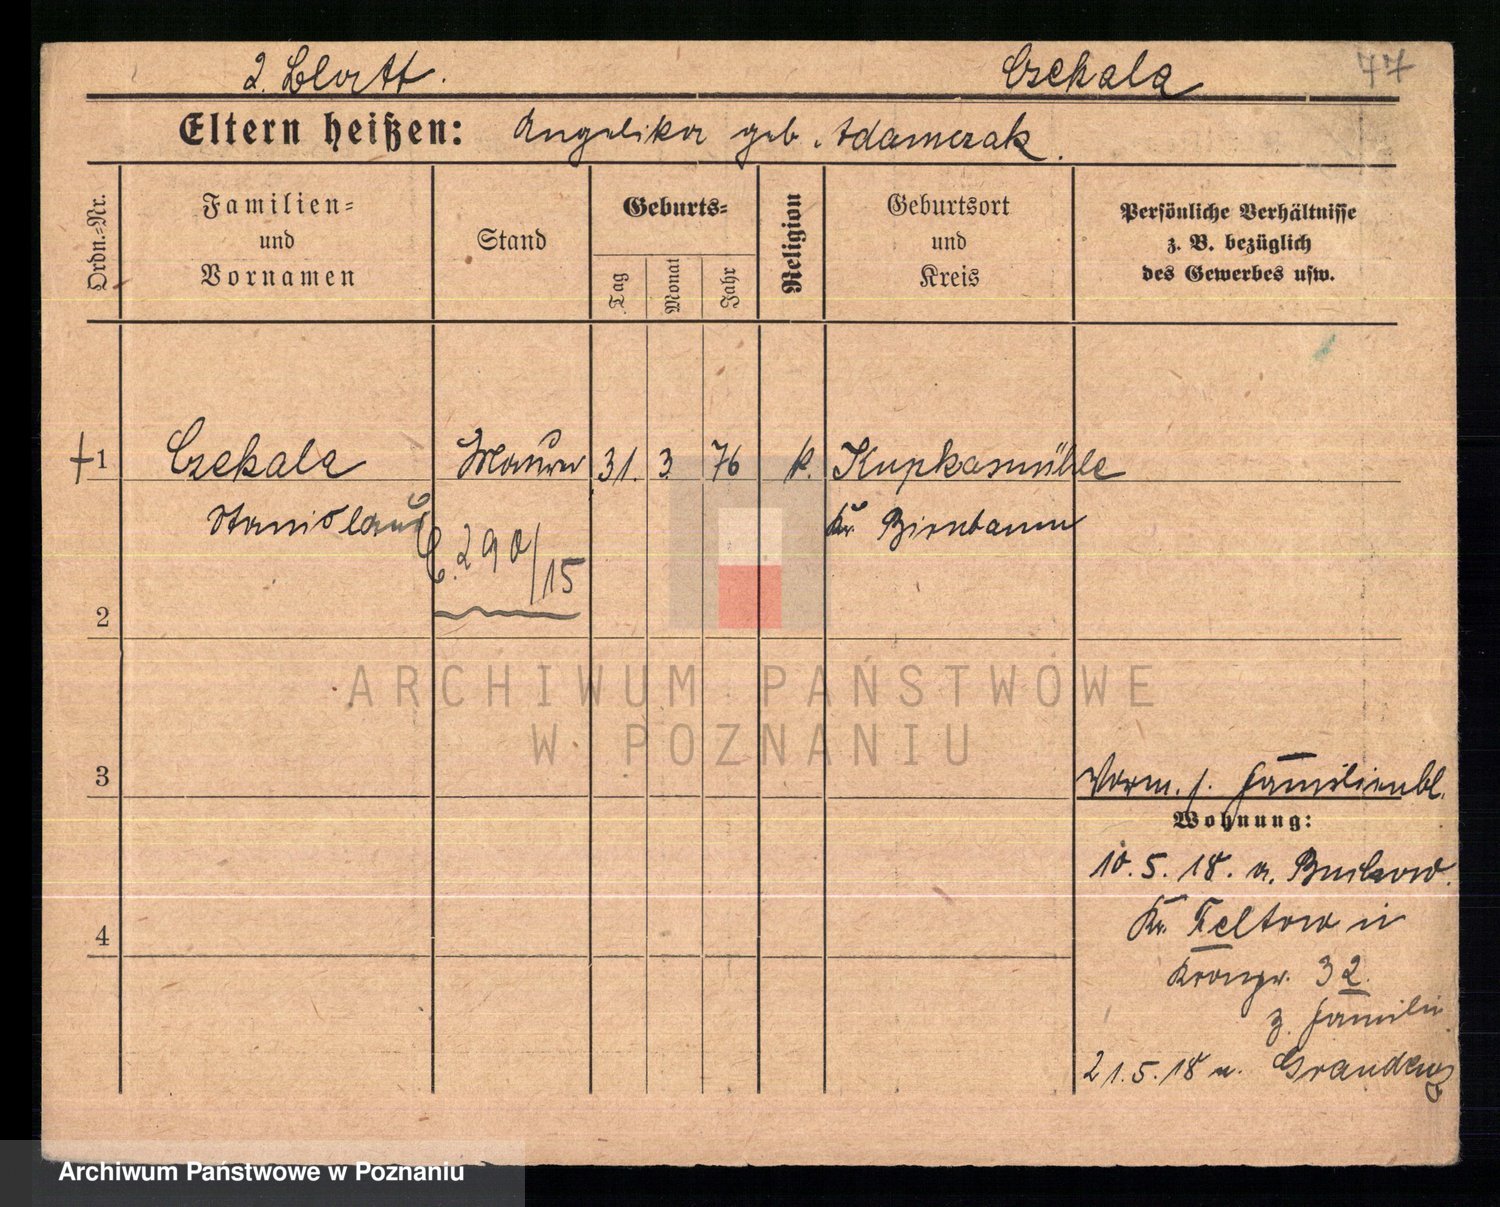 2. Blatt. Czekala 77
Eltern heißen: Angelika geb. Adamczak.
Ordn.-Nr.
Familien-
und
Vornamen
Stand
Geburts-
Tag
Monat
Jahr
Religion
Geburtsort
und
Kreis
Persönliche Verhältnisse
z. B. bezüglich
des Gewerbes usw.
1 Czekala Maurer 31. 3. 76 k. Kupkasmühle
Stanislaus Kr. Birnbaum
C. 290/15
2
3
4
Vorm. s. Familienbl.
Wohnung:
10.5.18. a.
Kr. Teltow in
32.
z. Familie
21.5.18 n. Graudenz
ARCHIWUM PAŃSTWOWE
W POZNANIU
Archiwum Państwowe w Poznaniu